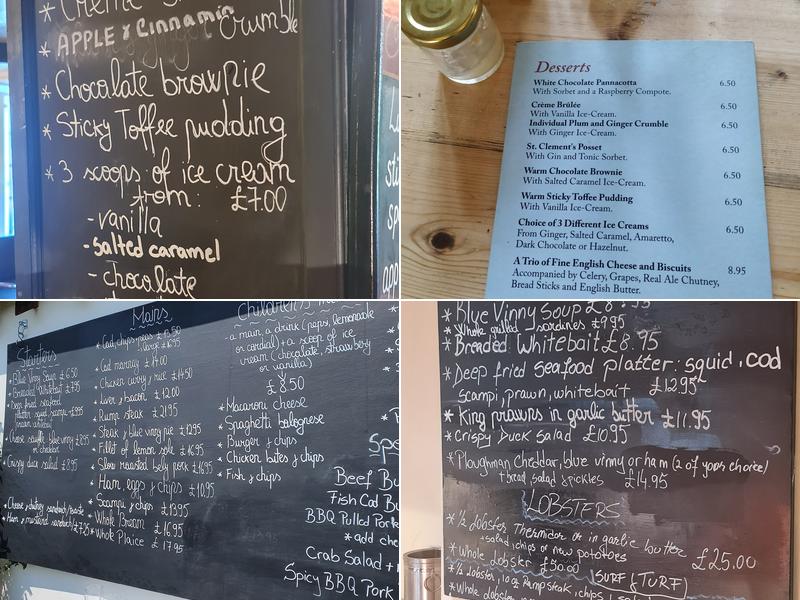 Crème
* APPLE & Cinnamin Crumble
* Chocolate brownie
* Sticky Toffee pudding
* 3 scoops of ice cream
from: £7.00
- vanilla
- salted caramel
- chocolate
Desserts
White Chocolate Pannacotta 6.50
With Sorbet and a Raspberry Compote.
Crème Brûlée 6.50
With Vanilla Ice-Cream.
Individual Plum and Ginger Crumble 6.50
With Ginger Ice-Cream.
St. Clement's Posset 6.50
With Gin and Tonic Sorbet.
Warm Chocolate Brownie 6.50
With Salted Caramel Ice-Cream.
Warm Sticky Toffee Pudding 6.50
With Vanilla Ice-Cream.
Choice of 3 Different Ice Creams 6.50
From Ginger, Salted Caramel, Amaretto,
Dark Chocolate or Hazelnut.
A Trio of Fine English Cheese and Biscuits 8.95
Accompanied by Celery, Grapes, Real Ale Chutney,
Bread Sticks and English Butter.
Starters
* Blue Vinny Soup £6.50
* Breaded Whitebait £7.95
* Deep fried seafood
platter: squid, scampi
prawn, whitebait
* Cheese soufflé blue vinny £8.95
or cheddar
* Crispy duck salad £8.95
* Cheese, chutney sandwich/paste
* Ham, mustard sandwich £7.25
Mains
* Cod, chips, peas
* Cod mornay £14.00
* Chicken curry, rice £14.50
* Liver, bacon £12.00
* Rump steak £21.95
* Steak, blue vinny pie £12.95
* Fillet of lemon sole £16.95
* Slow roasted belly pork £16.95
* Ham, eggs, chips £10.95
* Scampi, chips £13.95
* Whole Bream £16.95
* Whole Plaice £17.95
Children's
- a main, a drink (pepsi, lemonade
or cordial), a scoop of ice
cream (chocolate, strawberry
or vanilla)
£8.50
* Macaroni cheese
* Spaghetti bolognese
* Burger, chips
* Chicken bites, chips
* Fish, chips
Spe
Beef Bu
Fish Cod Bu
BBQ Pulled Pork
* add che
Crab Salad +
Spicy BBQ Pork
* Blue Vinny Soup
* Whole grilled sardines £9.95
* Breaded Whitebait £8.95
* Deep fried seafood platter: squid, cod
scampi, prawn, whitebait £12.95
* King prawns in garlic butter £11.95
* Crispy Duck Salad £10.95
* Ploughman Cheddar, blue vinny or ham (2 of your choice)
+ bread, salad & pickles £14.95
LOBSTERS
* ½ lobster Thermidor or in garlic butter
+ salad, chips or new potatoes £25.00
* whole lobster £50.00
SURF & TURF
* ½ lobster, 10oz Rump steak, chips, salad
* Whole lobster